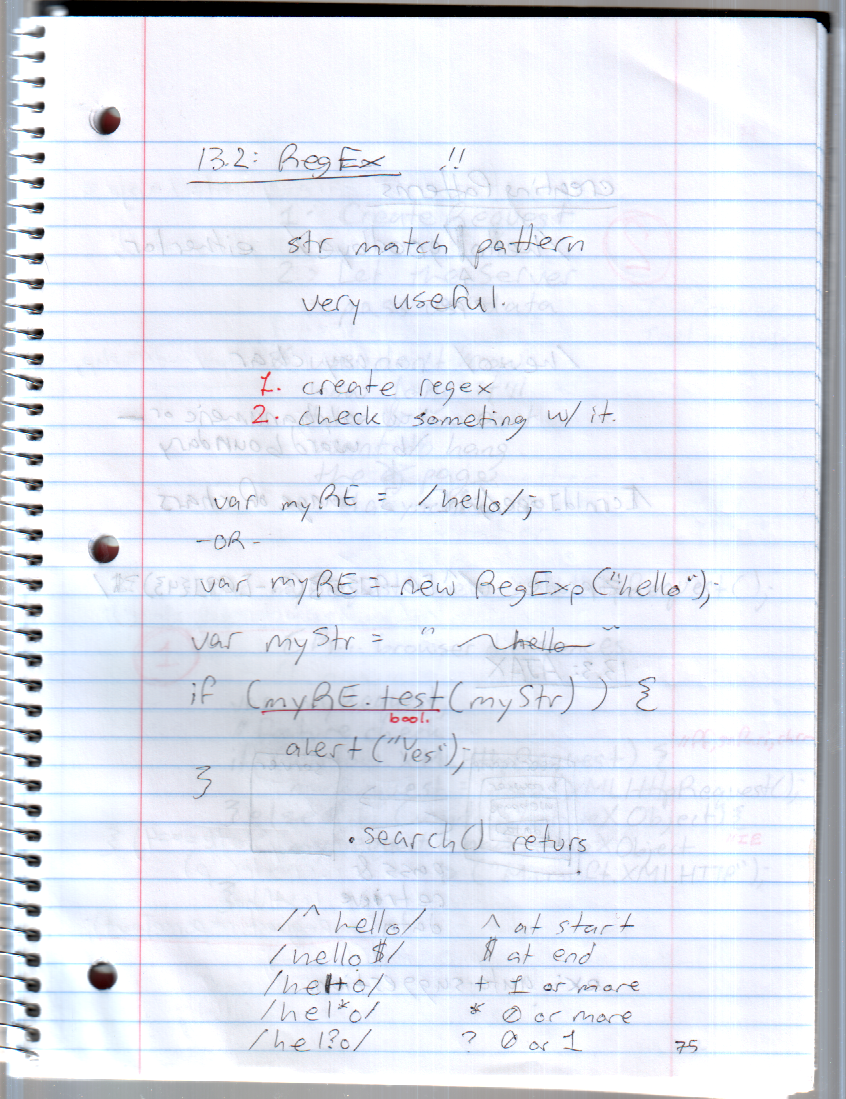 13.2: RegEx !!
str match pattern
very useful.
1. create regex
2. check someting w/ it.
var myRE = /hello/;
-OR-
var myRE = new RegExp("hello");
var myStr = " hello "
if (myRE.test(myStr)) {
bool.
alert("Yes");
}
.search() returs
/^hello/ ^ at start
/hello$/ $ at end
/hel+o/ + 1 or more
/hel*o/ * 0 or more
/hel?o/ ? 0 or 1
75